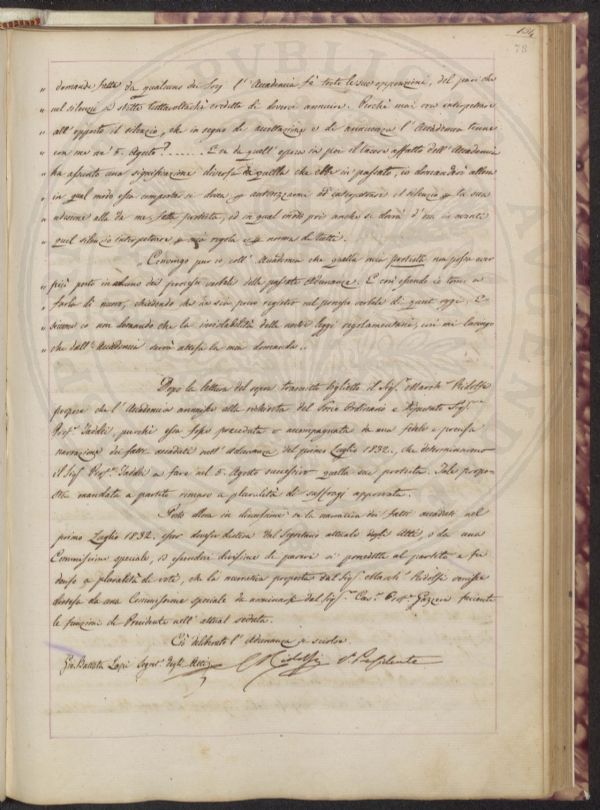 134
78
" domande fatte da qualcuno dei Socj l'Accademia fà tosto le sue opposizione, del pari che
" nel silenzio si stette tuttavoltachè credette di doversi annuire. Perchè mai ora interpetrare
" all'opposto il silenzio, che in segno di accettazione e di annuenza l'Accademia tenne
" con me ne' 5. Agosto? ...... E se da quell'epoca in poi il tacere affatto dell'Accademia
" ha assunto una significazione diversa da quella che ebbe in passato, io domanderò allora
" in qual modo essa comportar si deva autorizzarmi ad interpetrare il silenzio la sua
adesione alla da me fatta protesta, ed in qual modo poi anche si dovrà d'ora in avanti
" quel silenzio interpetrare regola e norma di tutti.
" Convengo pur io coll'Accademia che quella mia protesta non possa aver
" più posto in alcuno dei processi verbali delle passate Adunanze. E così essendo io torno a
" farla di nuovo, chiedendo che ne sia preso registro nel processo verbale di quest'oggi. E
" siccome io non domando che la inviolabilità delle nostre leggi regolamentarie, così mi lusingo
" che dall'Accademia sarà attesa la mia domanda.,
Dopo la lettura del sopra trascritto biglietto il Sig. March. Ridolfi
propose che l'Accademia annuisse alla richiesta del Socio Ordinario e Deputato Sig.
Prof. Taddei, purchè essa fosse preceduta o accompagnata da una fedele e precisa
narrazione dei fatti accaduti nell'Adunanza del primo Luglio 1832, che determinarono
il Sig. Prof. Taddei a fare nel 5. Agosto successivo quella sua protesta. Tale propo-
sta mandata a partito rimase a pluralità di suffragj approvata.
Posto allora in discussione se la narrativa dei fatti accaduti nel
primo Luglio 1832, esser dovesse distesa dal Segretario attuale degli Atti, o da una
Commissione speciale, ed essendovi divisione di parere si procedette al partito e fu
deciso a pluralità di voti, che la narrativa proposta dal Sig. March. Ridolfi venisse
distesa da una Commissione speciale da nominarsi dal Sig. Cav. Prof. Gazzeri facente
le funzioni di Presidente nell'attual seduta.
Ciò deliberato l'Adunanza si sciolse
Gio. Batista Lapi Segret. degli Atti C. Ridolfi V. Presidente